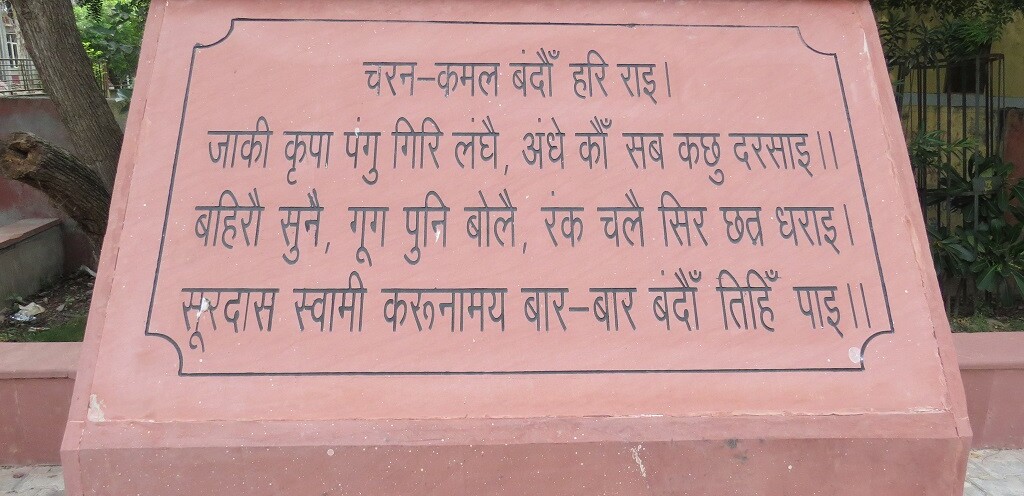 चरन-कमल बंदौँ हरि राइ।
जाकी कृपा पंगु गिरि लंघै, अंधे कौँ सब कछु दरसाइ।।
बहिरौ सुनै, गूग पुनि बोलै, रंक चलै सिर छत्र धराइ।
सूरदास स्वामी करूनामय बार-बार बंदौँ तिहिँ पाइ।।